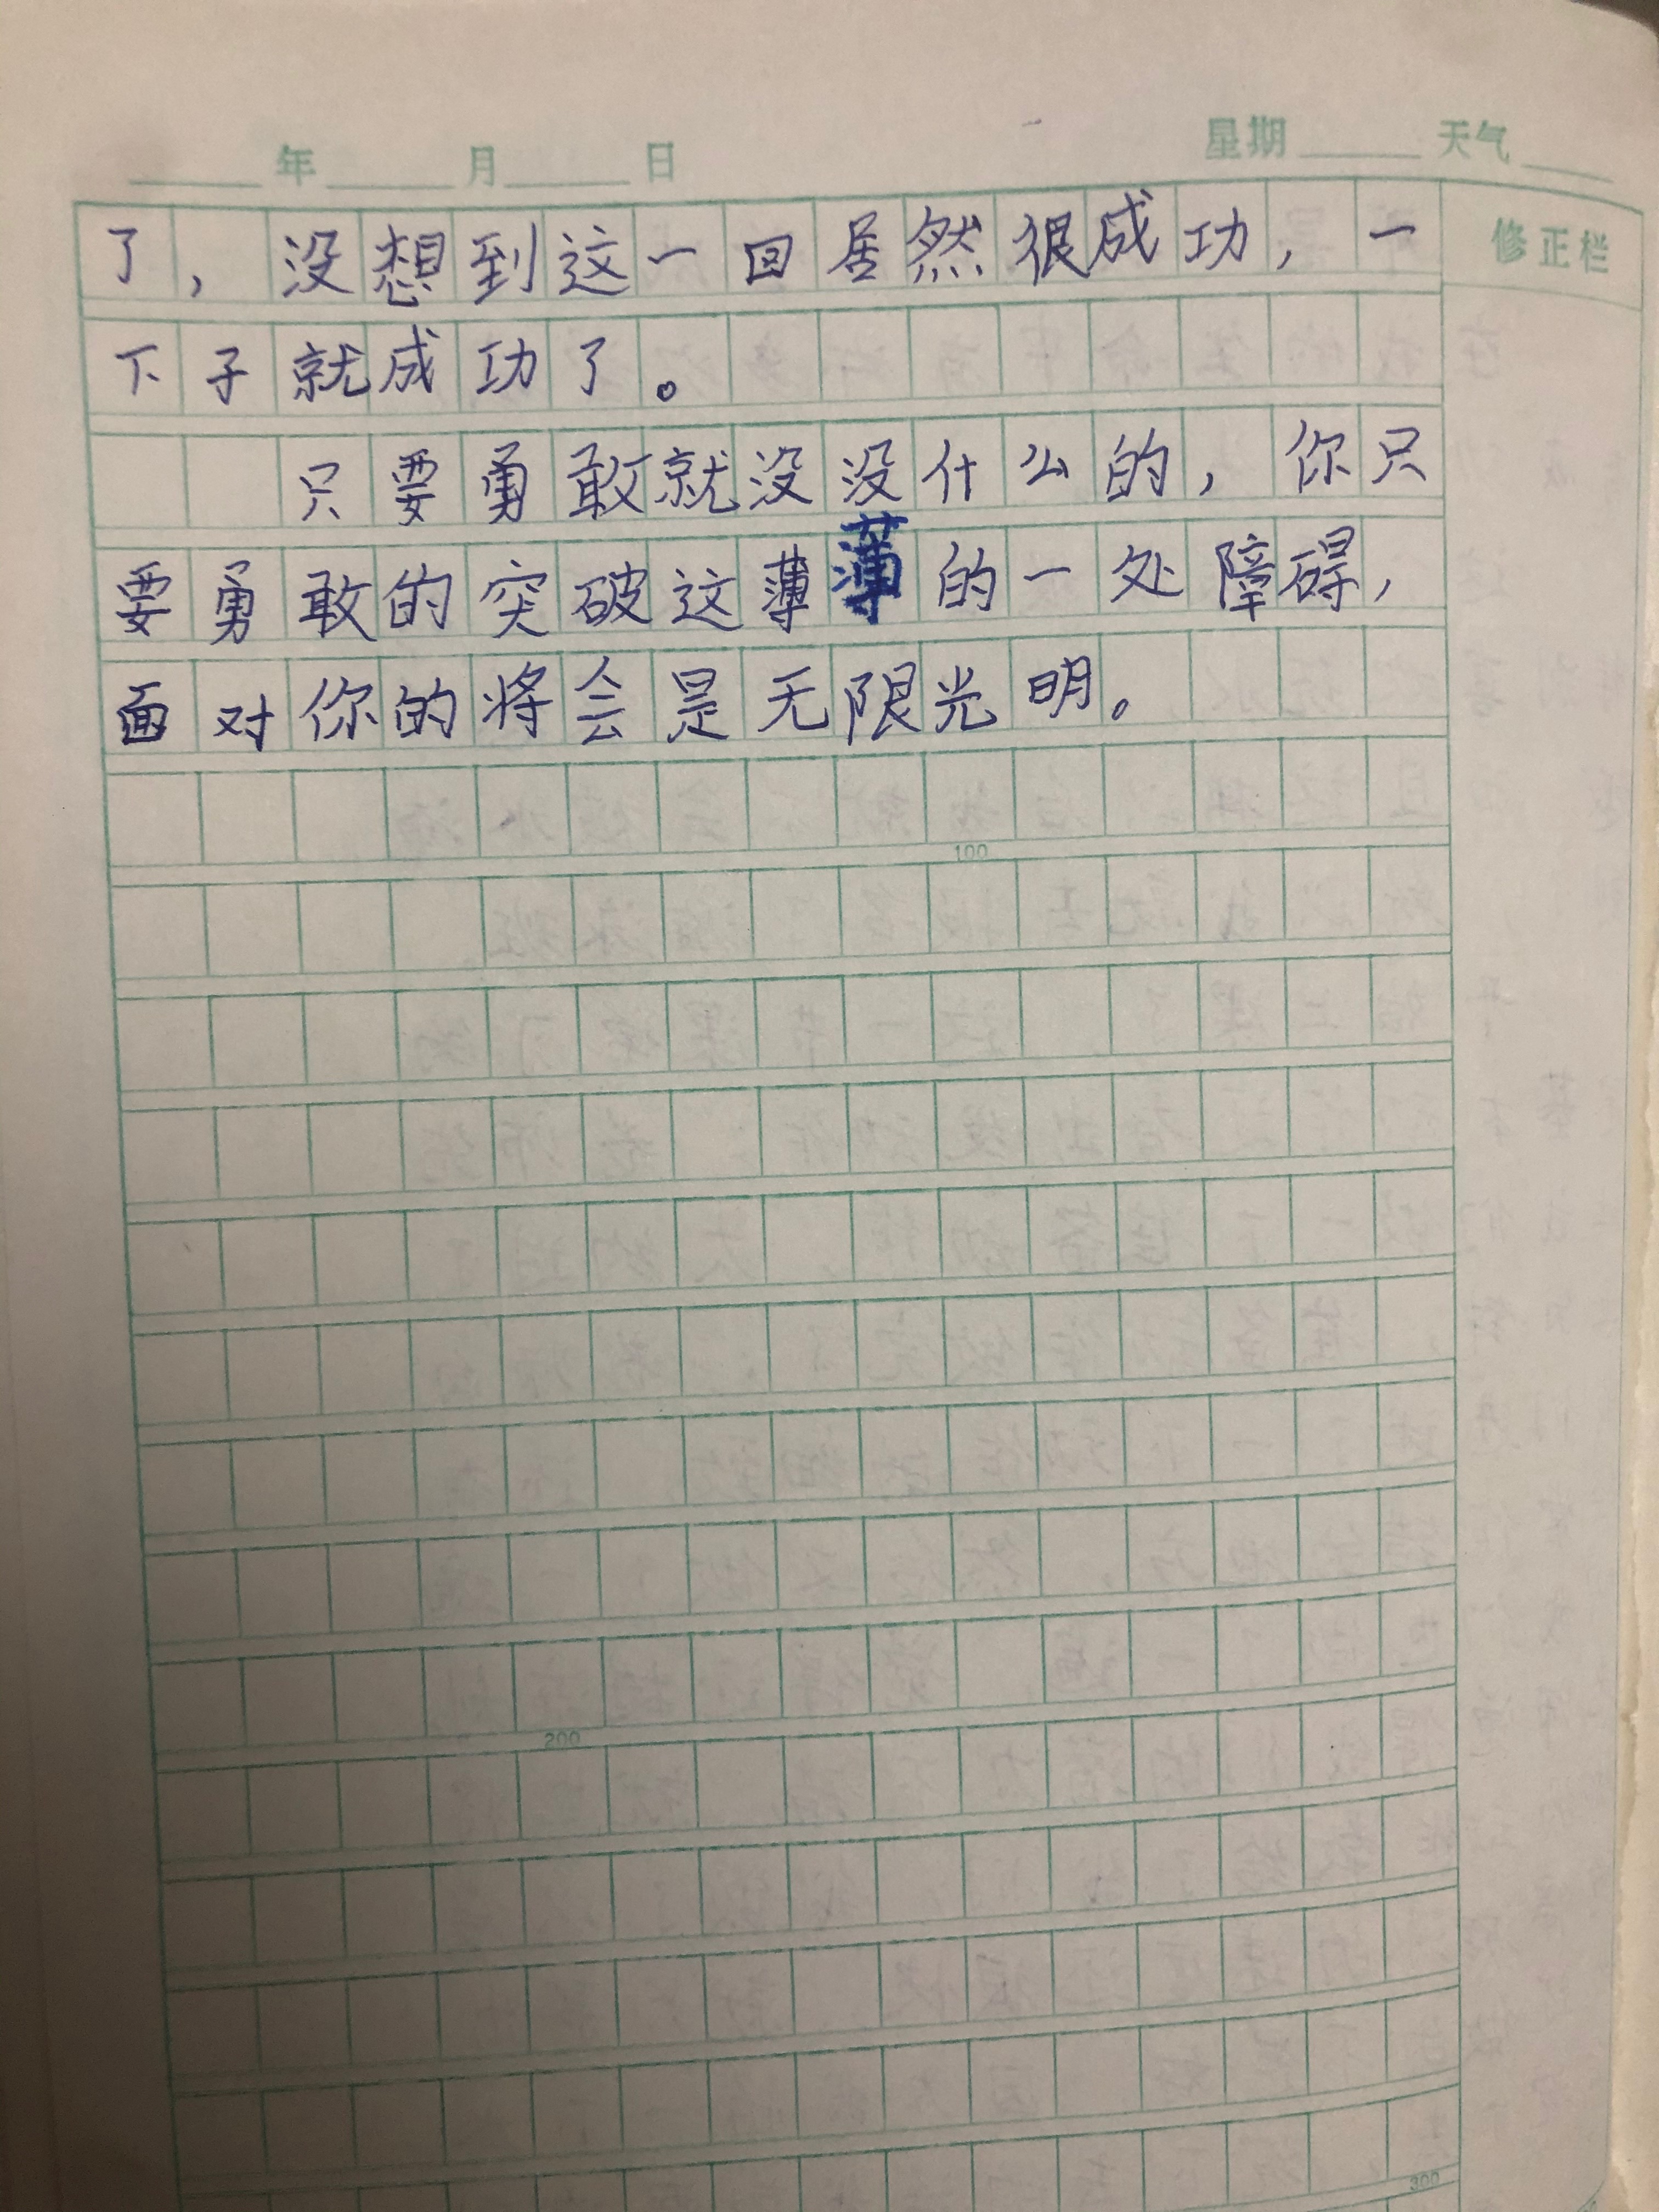 年 月 日 星期 天气
修正栏
了，没想到这一回居然很成功，一
下子就成功了。
只要勇敢就没没什么的，你只
要勇敢的突破这薄薄的一处障碍，
面对你的将会是无限光明。
100
200
300